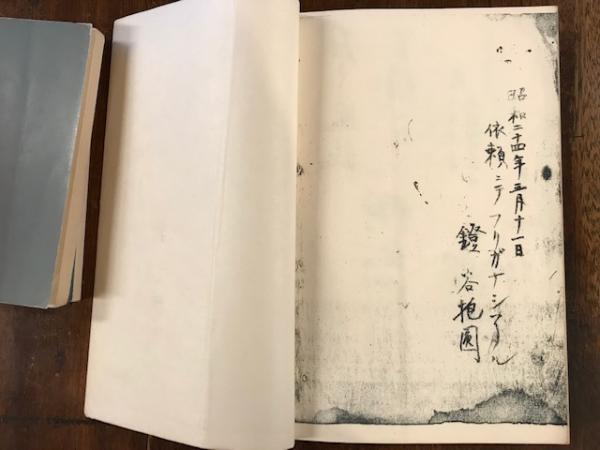 昭和二十四年三月十一日
依頼ニテフリガナシアル
鐙谷抱圓